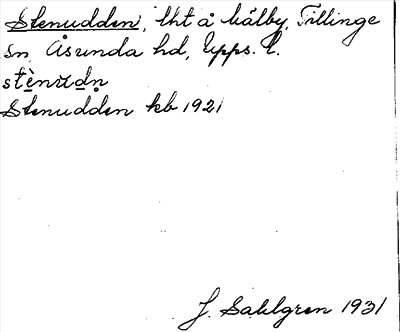 Stenudden, lht å Kälby, Tillinge
sn, Åsunda hd, Upps. l.
stènud̥n̥
Stenudden kb 1921
J. Sahlgren 1931